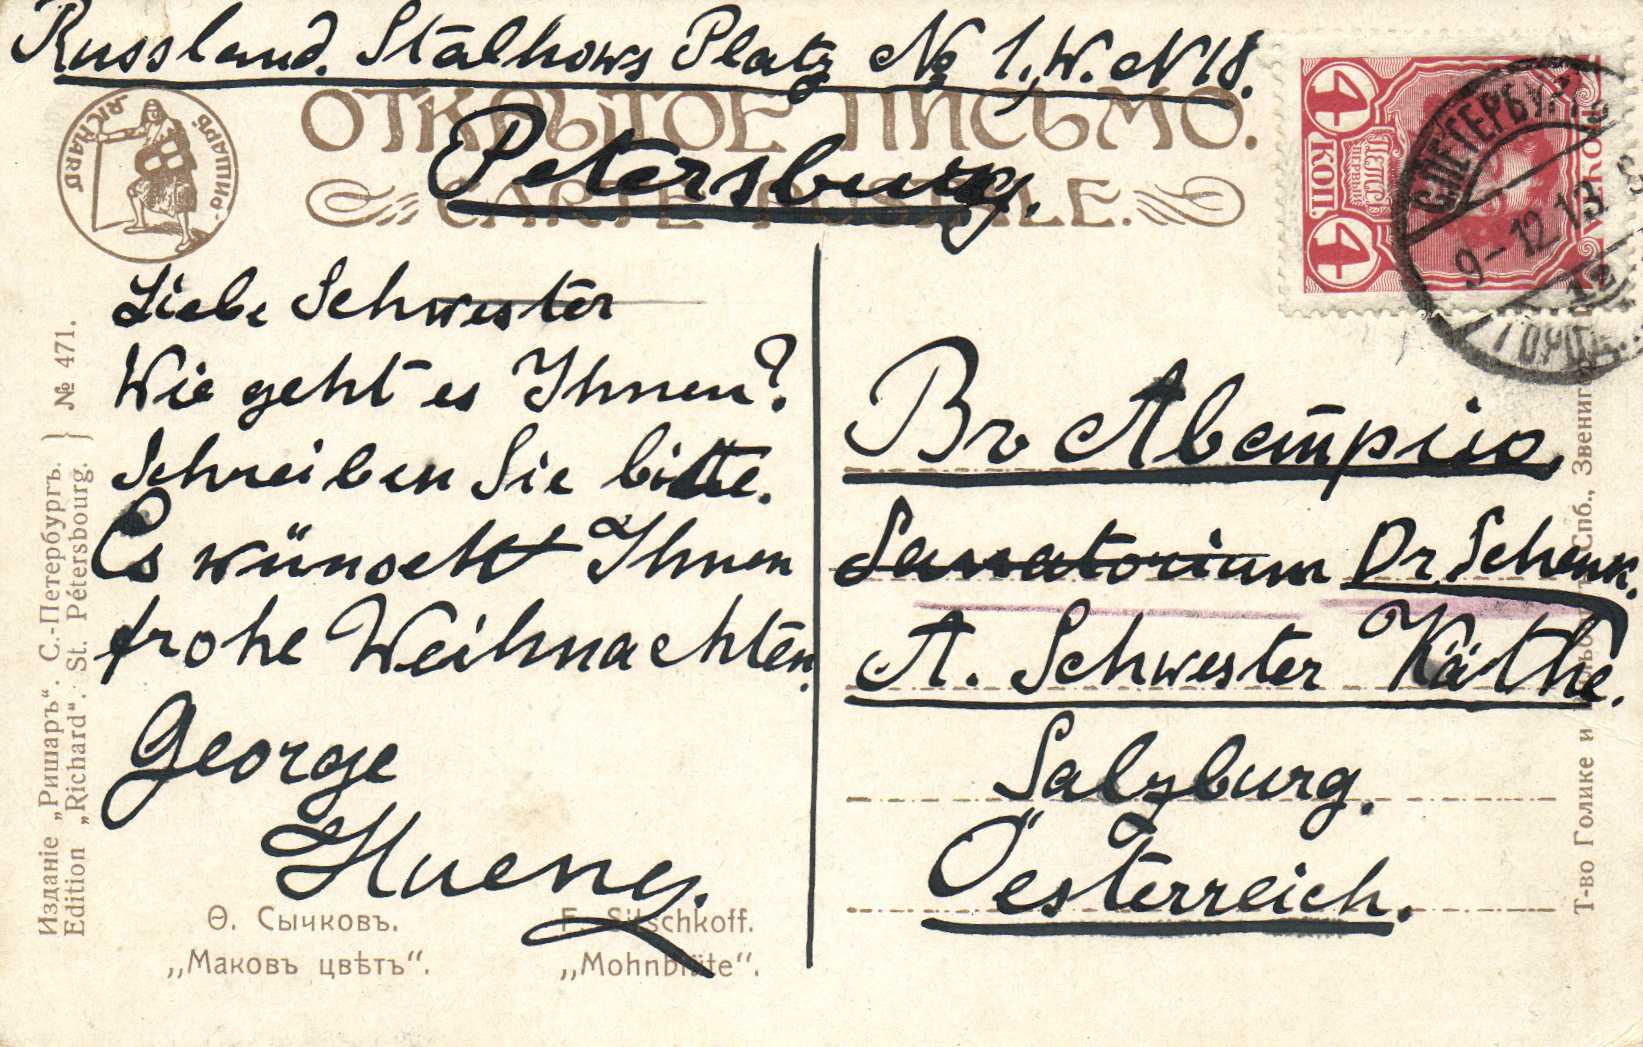 Russland. Stalhows Platz № 1, W. N 18.
ОТКРЫТОЕ ПИСЬМО.
Petersburg.
CARTE POSTALE.
RICHARD
РИШАРЪ
4 КОП. 4
С.ПЕТЕРБУРГ
9-12.13
Liebe Schwester
Wie geht es Ihnen?
Schreiben Sie bitte.
Es wünscht Ihnen
frohe Weihnachten.
George
Hueng.
Въ Австрію,
Sanatorium Dr. Schenk.
A. Schwester Käthe.
Salzburg.
Oesterreich.
Изданіе „Ришаръ“. С.-Петербургъ. } № 471.
Edition „Richard“. St. Pétersbourg.
Ѳ. Сычковъ. F. Sitschkoff.
„Маковъ цвѣтъ“. „Mohnblüte“.
Т-во Голике и Спб., Звениг